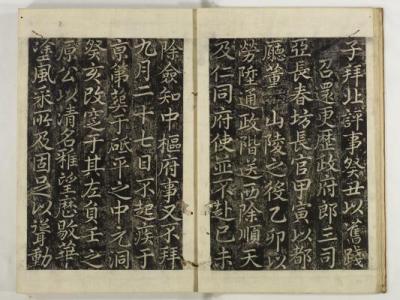 子拜北評事癸丑以舊踐
召還更歷政府郎三司
亞長春坊長官甲寅以都
廳董山陵之後乙卯以
勞陞通政階送西除順天
及仁同府使並不赴己未
除僉知中樞府事又不拜
九月二十七日不起疾于
京第葬于砥平之中元洞
癸亥改窆于其左負壬之
原公以清名雅望歷敭華
塗風采所及固足以聳動